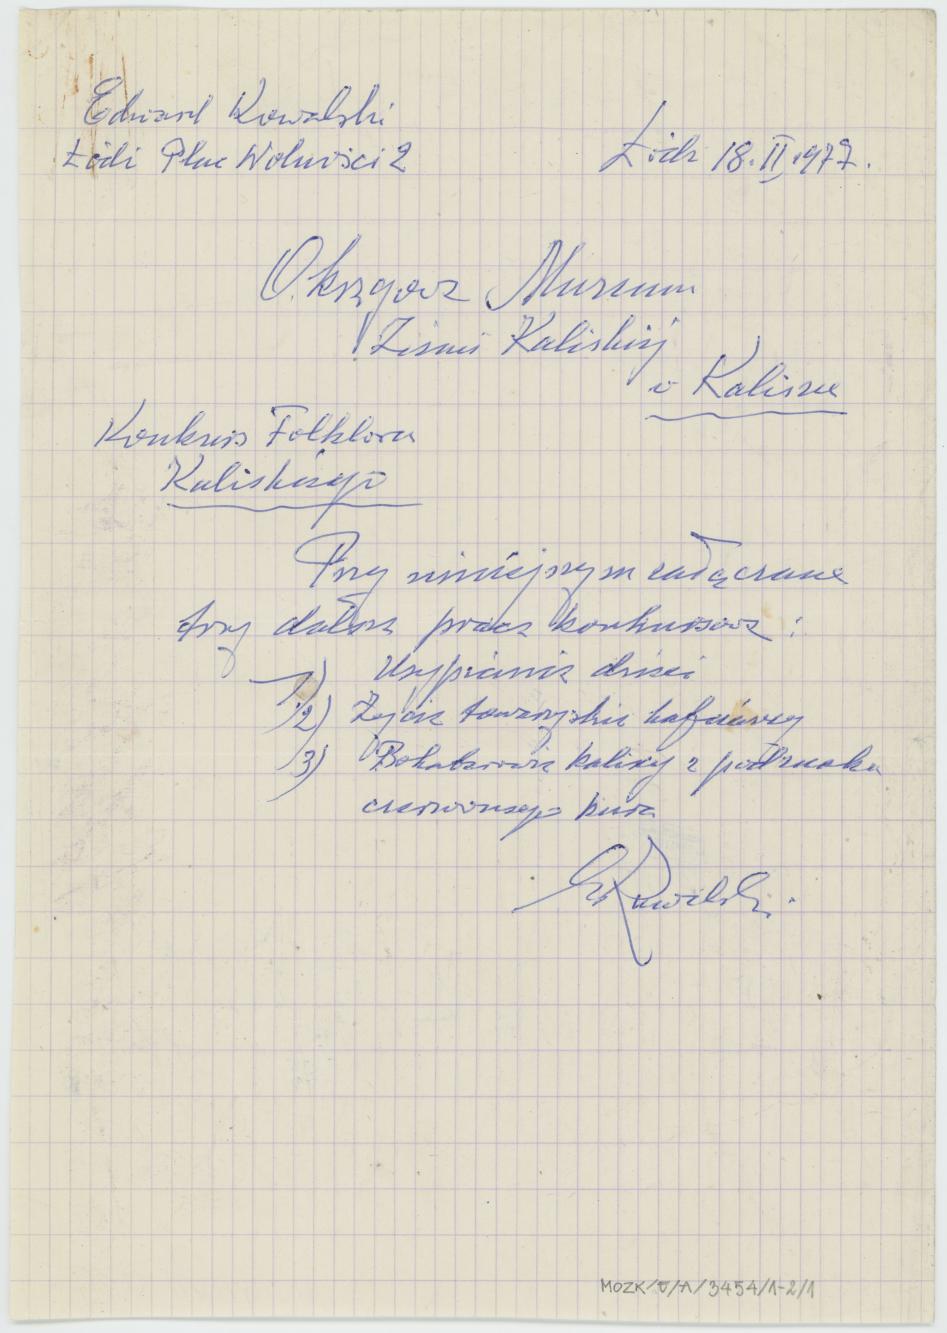 Edward Kowalski
Łódź Plac Wolności 2
Łódź 18.II.1977.
Okręgowe Muzeum
Ziemi Kaliskiej
w Kaliszu
Konkurs Folkloru
Kaliskiego
Przy niniejszym załączane
trzy dalsze prace konkursowe:
1) Usypianie dzieci
2) Życie towarzyskie hafciarzy
3) Bohaterowie Kaliscy z pod znaku
czerwonego kura
E Kowalski.
MOZK/E/A/3454/1-2/1